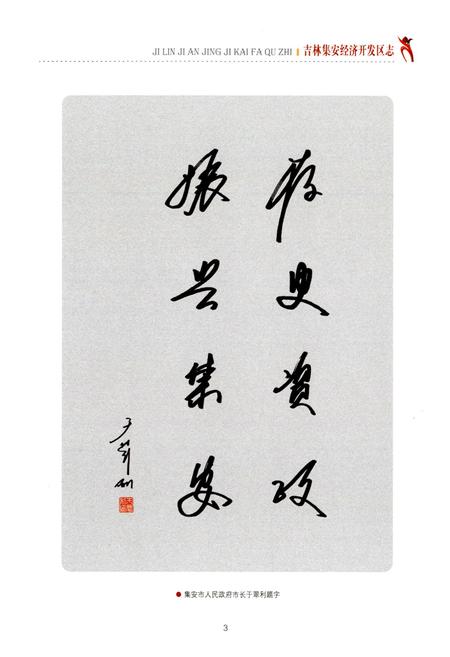 JI LIN JI AN JING JI KAI FA QU ZHI
吉林集安经济开发区志
存史资政
振兴集安
于翠利
集安市人民政府市长于翠利题字
3